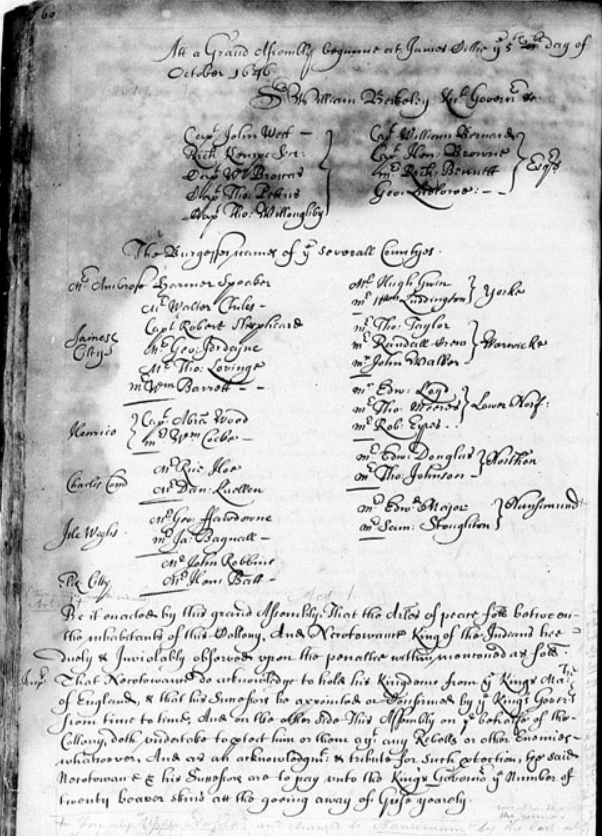 60
Att a Grand Assembly begunne at James Cittie yᵉ 5ᵗʰ day of
October 1646.
Sʳ William Berkeley Knᵗ Governʳ &c.
Capᵗ John West
Rich Kempe Secʳ
Capᵗ Wᵐ Brocas
Capᵗ Tho: Pettus
Capᵗ Tho: Willoughby
Capᵗ William Bernard
Capᵗ Hen: Browne
mʳ Rich: Bennett
Geo: Ludlowe: Esqʳˢ
The Burgesses names of yᵉ severall Countyes.
Mʳ Ambrose Harmer Speaker
James Cittye
Mʳ Walter Chiles
Capᵗ Robert Shepheard
Mʳ Geo: Jordayne
Mʳ Tho: Lovinge
mʳ Wᵐ Barrett
Henrico
Capᵗ Abra: Wood
mʳ Wᵐ Cocke
Charles
Mʳ Ric:
Mʳ Dan: Luellen
Isle Wight
Mʳ Geo: ffawdowne
mʳ Ja: Bagnall
Eliz Citty
Mʳ John Robbins
Mʳ Hen: Ball
Mʳ Hugh Gwin
mʳ Luddington Yorke
mʳ Tho: Taylor
mʳ Randall Crew
mʳ John Walker Warwicke
mʳ Edw: Loyd
mʳ Tho: Meeres
mʳ Rob: Eyres Lower Norf:
mʳ Edw: Douglas
mʳ Tho: Johnson Northon
mʳ Edwᵈ Major
mʳ Sam: Stoughton Nansimund
Act 1
Be it enacted by this grand Assembly. That the Artles of peace foll: betweene
the inhabitants of this Collony, And Necotowance King of the Indians bee
duely & Inviolably observed upon the penaltie within mentioned as foll:
Impʳ That Necotowance do acknowledge to hold his Kingdome from yᵉ Kings Maᵗⁱᵉ
of England, & that his Successors be appointed or Confirmed by yᵉ Kings Governʳˢ
from time to time, And on the other side This Assembly on yᵉ behalfe of the
Collony, doth undertake to ptect him or them agᵗ any Rebells or other Enemies
whatsoever, And as an acknowledgmᵗ & tribute for such ptection, the said
Necotowance & his Successors are to pay unto the Kings Governʳ yᵉ Number of
twenty beaver skins att the goeing away of Geese yearely.